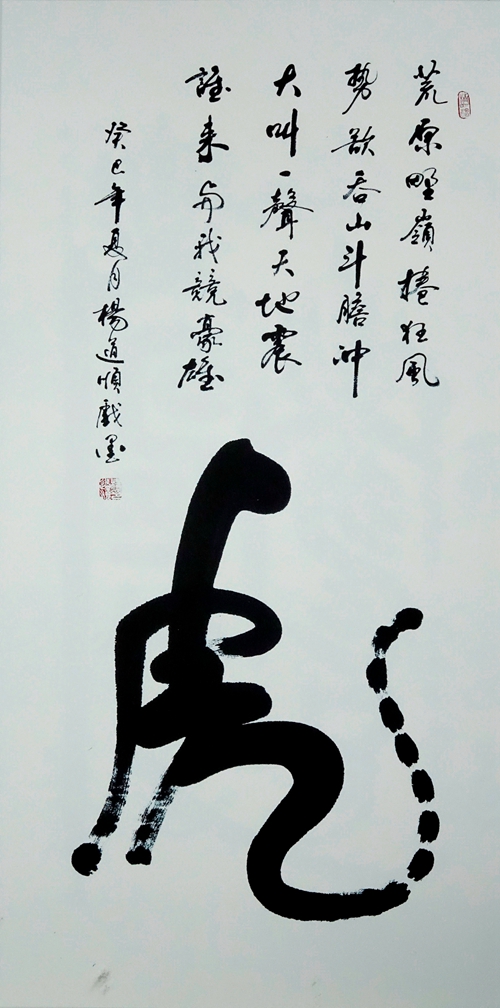 荒原野嶺捲狂風
勢欲吞山斗膽沖
大叫一聲天地震
誰来与我競豪雄
癸巳年夏月楊道順戲墨
虎